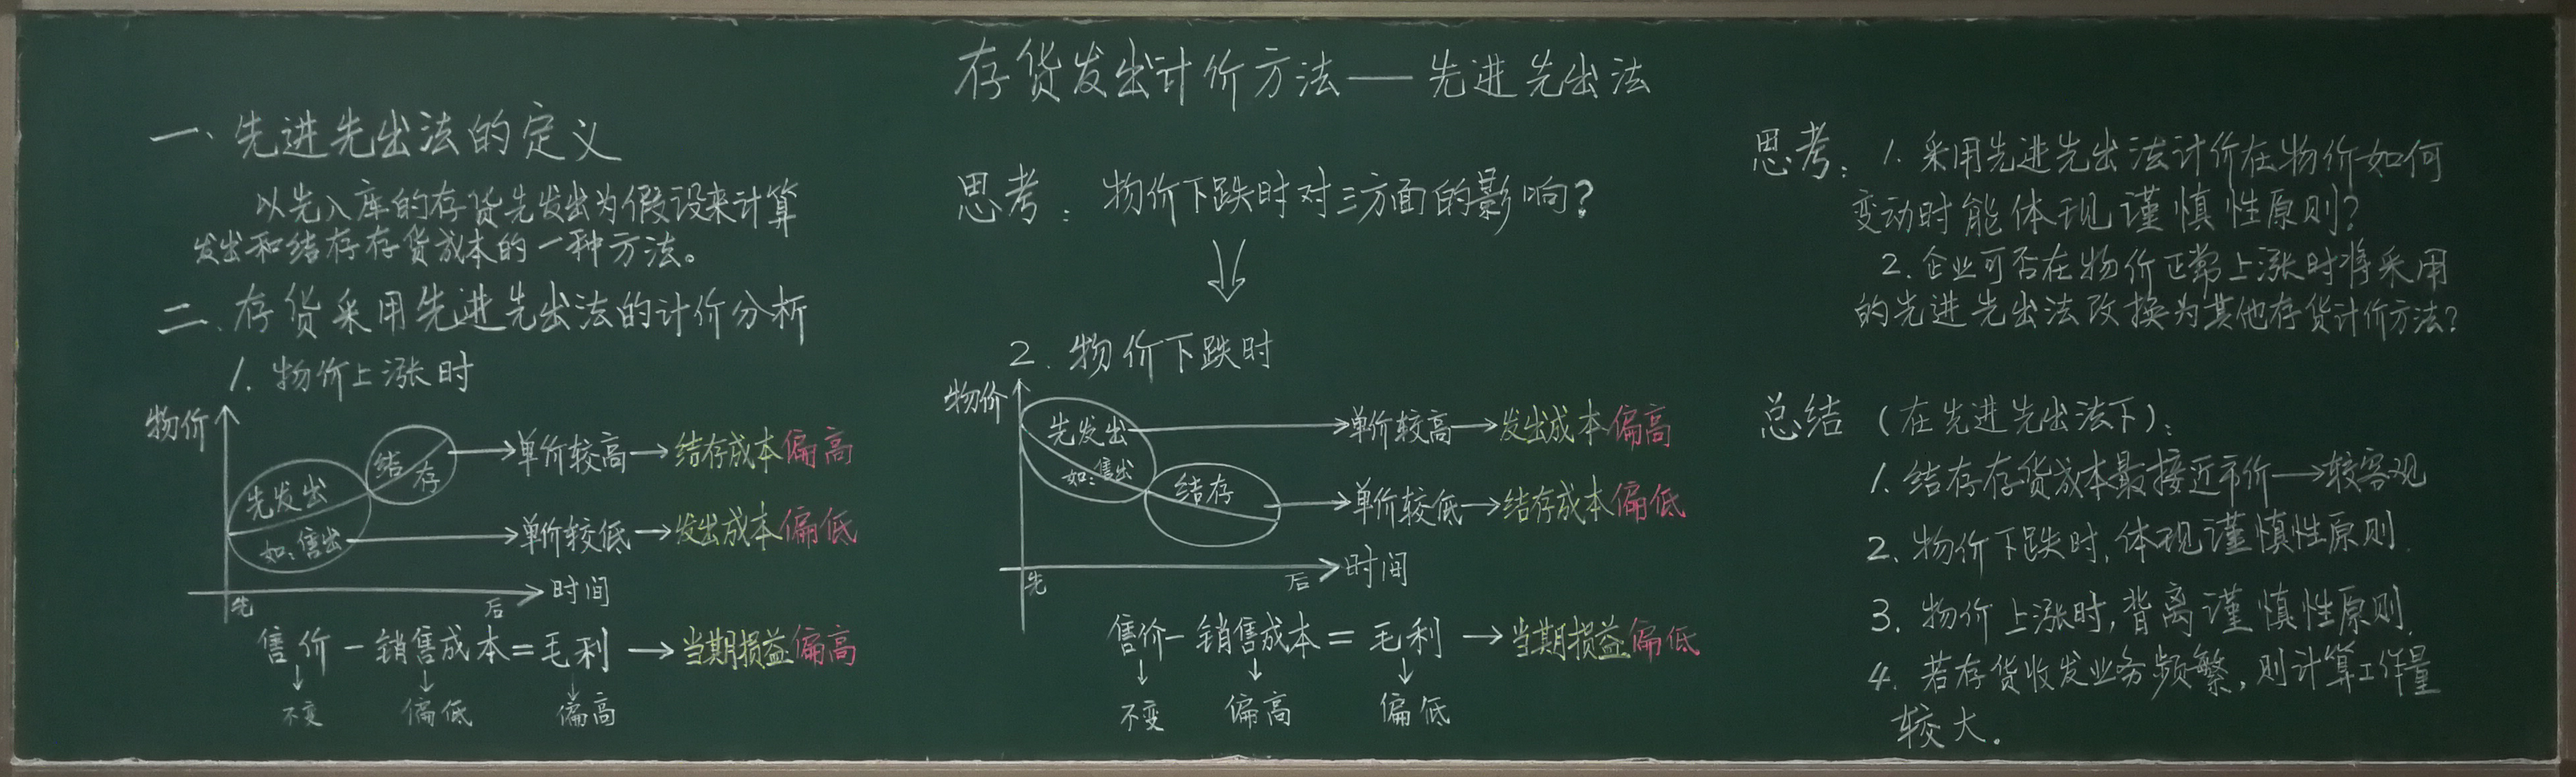 存货发出计价方法——先进先出法
一、先进先出法的定义
以先入库的存货先发出为假设来计算
发出和结存存货成本的一种方法。
二、存货采用先进先出法的计价分析
1. 物价上涨时
物价
结存
先发出
如:售出
单价较高→结存成本偏高
单价较低→发出成本偏低
先
后
时间
售价-销售成本=毛利→当期损益偏高
↓ ↓ ↓
不变 偏低 偏高
思考:物价下跌时对三方面的影响?
⇓
2. 物价下跌时
物价
先发出
如:售出
结存
单价较高→发出成本偏高
单价较低→结存成本偏低
先
后
时间
售价-销售成本=毛利→当期损益偏低
↓ ↓ ↓
不变 偏高 偏低
思考:1. 采用先进先出法计价在物价如何
变动时能体现谨慎性原则?
2. 企业可否在物价正常上涨时将采用
的先进先出法改换为其他存货计价方法?
总结(在先进先出法下):
1. 结存存货成本最接近市价→较客观
2. 物价下跌时,体现谨慎性原则.
3. 物价上涨时,背离谨慎性原则.
4. 若存货收发业务频繁,则计算工作量
较大.